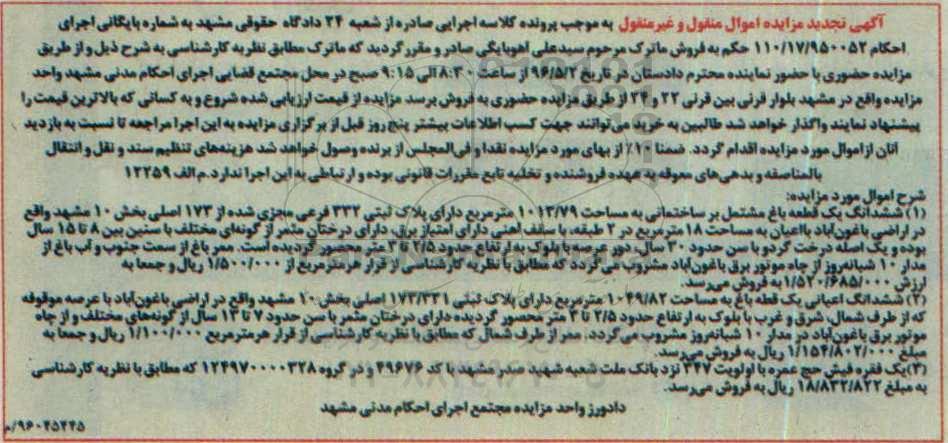 آگهی تجدید مزایده اموال منقول و غیرمنقول به موجب پرونده کلاسه اجرایی صادره از شعبه ۲۴ دادگاه حقوقی مشهد به شماره بایگانی اجرای
احکام ۱۱۰/۱۷/۹۵۰۰۵۲ حکم به فروش ماترک مرحوم سیدعلی آهوبایگی صادر و مقرر گردید که ماترک مطابق نظریه کارشناسی به شرح ذیل و از طریق
مزایده حضوری با حضور نماینده محترم دادستان در تاریخ ۹۶/۵/۲ از ساعت ۸:۳۰ الی ۹:۱۵ صبح در محل مجتمع قضایی اجرای احکام مدنی مشهد واحد
مزایده واقع در مشهد بلوار قرنی بین قرنی ۲۲ و ۲۴ از طریق مزایده حضوری به فروش برسد مزایده از قیمت ارزیابی شده شروع و به کسانی که بالاترین قیمت را
پیشنهاد نمایند واگذار خواهد شد طالبین به خرید می‌توانند جهت کسب اطلاعات بیشتر پنج روز قبل از برگزاری مزایده به این اجرا مراجعه تا نسبت به بازدید
آنان از اموال مورد مزایده اقدام گردد. ضمنا ۱۰٪ از بهای مورد مزایده نقدا و فی‌المجلس از برنده وصول خواهد شد هزینه‌های تنظیم سند و نقل و انتقال
بالمناصفه و بدهی‌های معوقه به عهده فروشنده و تخلیه تابع مقررات قانونی بوده و ارتباطی به این اجرا ندارد.م.الف ۱۲۲۵۹
شرح اموال مورد مزایده:
(۱) ششدانگ یک قطعه باغ مشتمل بر ساختمانی به مساحت ۱۰۱۳/۷۹ مترمربع دارای پلاک ثبتی ۳۳۲ فرعی مجزی شده از ۱۷۳ اصلی بخش ۱۰ مشهد واقع
در اراضی باغون‌آباد بااعیان به مساحت ۱۸ مترمربع در ۲ طبقه، با سقف آهنی دارای امتیاز برق، دارای درختان مثمر از گونه‌های مختلف با سنین بین ۸ تا ۱۵ سال
بوده و یک اصله درخت گردو با سن حدود ۳۰ سال، دور عرصه با بلوک به ارتفاع حدود ۲/۵ تا ۳ متر محصور گردیده است. ممر باغ از سمت جنوب و آب باغ از
مدار ۱۰ شبانه‌روز از چاه موتور برق باغون‌آباد مشروب می‌گردد که مطابق با نظریه کارشناسی از قرار هرمترمربع از ۱/۵۰۰/۰۰۰ ریال و جمعا به
ارزش ۱/۵۲۰/۶۸۵/۰۰۰ به فروش می‌رسد.
(۲) ششدانگ اعیانی یک قطعه باغ به مساحت ۱۰۴۹/۸۲ مترمربع دارای پلاک ثبتی ۱۷۳/۳۳۱ اصلی بخش ۱۰ مشهد واقع در اراضی باغون‌آباد با عرصه موقوفه
که از طرف شمال، شرق و غرب با بلوک به ارتفاع حدود ۲/۵ تا ۳ متر محصور گردیده دارای درختان مثمر با سن حدود ۷ تا ۱۳ سال از گونه‌های مختلف و از چاه
موتور برق باغون‌آباد در مدار ۱۰ شبانه‌روز مشروب می‌گردد. ممر از طرف شمال که مطابق با نظریه کارشناسی از قرار هرمترمربع ۱/۱۰۰/۰۰۰ ریال و جمعا به
مبلغ ۱/۱۵۴/۸۰۲/۰۰۰ ریال به فروش می‌رسد.
(۳) یک فقره فیش حج عمره با اولویت ۳۴۷ نزد بانک ملت شعبه شهید صدر مشهد با کد ۴۹۶۷۶ و در گروه ۱۲۴۹۷۰۰۰۰۳۲۸ که مطابق با نظریه کارشناسی
به مبلغ ۱۸/۸۳۲/۸۲۲ ریال به فروش می‌رسد.
دادورز واحد مزایده مجتمع اجرای احکام مدنی مشهد
۹۶۰۴۵۲۴۵/م